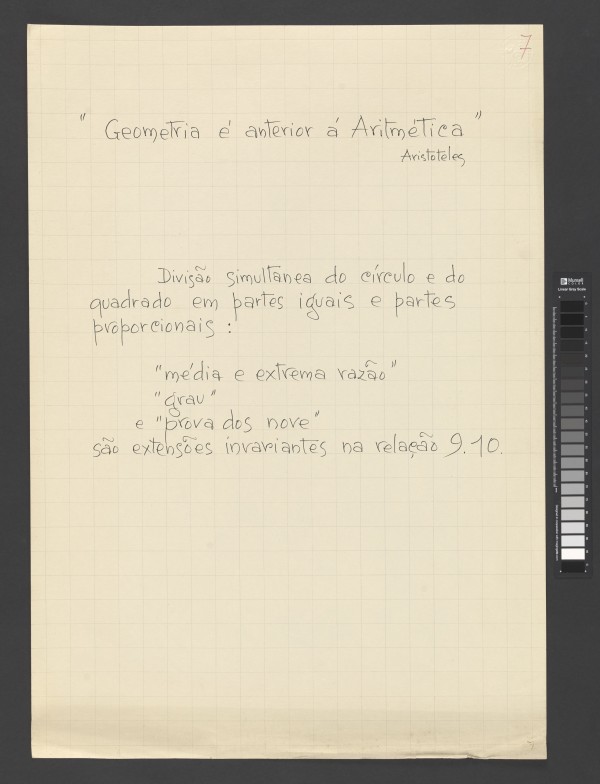 7
" Geometria é anterior á Aritmética "
Aristoteles
Divisão simultânea do círculo e do
quadrado em partes iguais e partes
proporcionais :
"média e extrema razão"
"grau"
e "prova dos nove"
são extensões invariantes na relação 9.10.